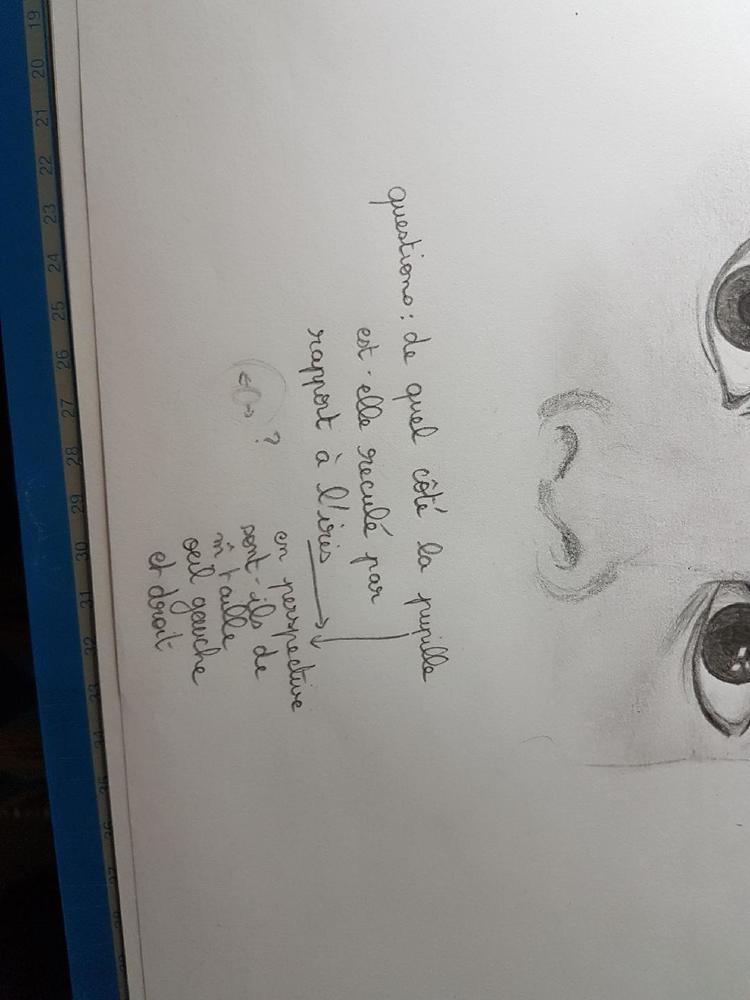 questions: de quel côté la pupille
est-elle reculé par
rapport à l'iris
?
en perspective
sont-ils de
m̂ taille
oeil gauche
et droit
19
20
21
22
23
24
25
26
27
28
29
30
31
32
33
34